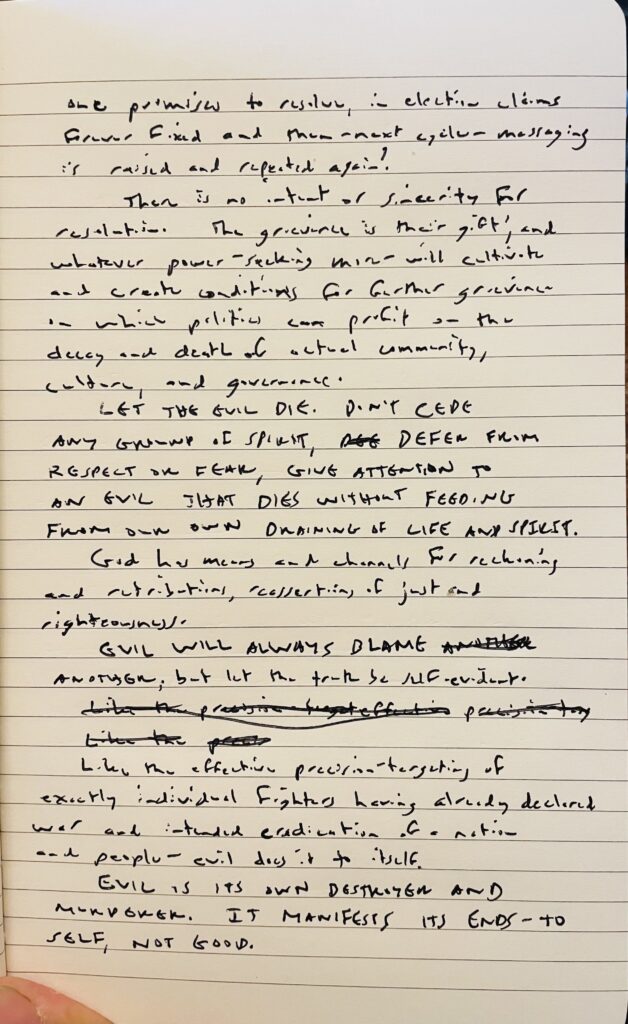 one promises to resolve, in election claims
forever fixed and then-next cycle-messaging
is raised and repeated again!
There is no intent or sincerity for
resolution. The grievance is their gift; and
whatever power-seeking mire-will cultivate
and create conditions for further grievance
in which politics can profit on the
decay and death of actual community,
culture, and governance.
LET THE EVIL DIE. DON'T CEDE
ANY GROUND OF SPIRIT, DEFER FROM
RESPECT OR FEAR, GIVE ATTENTION TO
AN EVIL THAT DIES WITHOUT FEEDING
FROM OUR OWN DRAINING OF LIFE AND SPIRIT.
God has means and channels for reckoning
and retributions, reassertions of just and
righteousness.
EVIL WILL ALWAYS BLAME ANOTHER
ANOTHER, but let the truth be self-evident.
Like the precision-target effective precision-
Like the
Like the effective precision-targeting of
exactly individual fighters having already declared
war and intended eradication of a nation
and people-evil does it to itself.
EVIL IS ITS OWN DESTROYER AND
MURDERER. IT MANIFESTS ITS ENDS-TO
SELF, NOT GOOD.